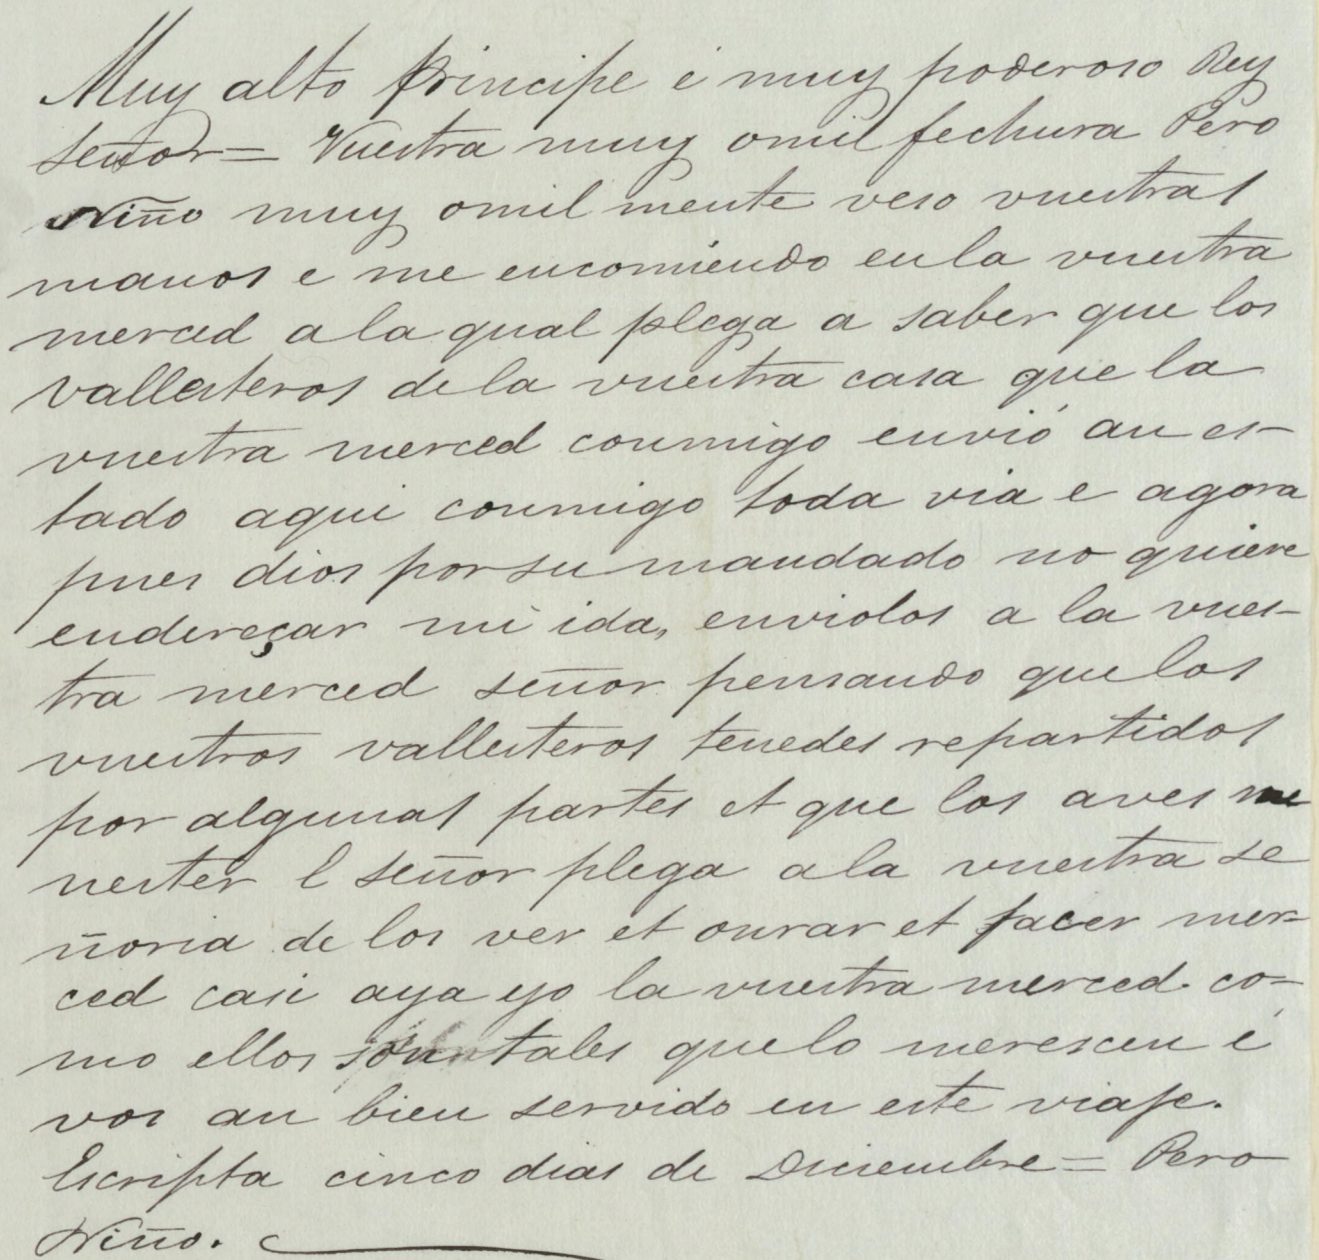 Muy alto Principe é muy poderoso Rey
señor = Vuestra muy omil fechura Pero
Niño muy omil mente veso vuestras
manos e me encomiendo en la vuestra
merced a la qual plega a saber que los
vallesteros de la vuestra casa que la
vuestra merced conmigo envió an es-
tado aqui conmigo toda via e agora
pues dios por su mandado no quiere
endereçar mi ida, enviolos a la vues-
tra merced señor pensando que los
vuestros vallesteros tenedes repartidos
por algunas partes et que los aves me
nester E señor plega a la vuestra se
ñoria de los ver et onrar et facer mer-
ced casi aya yo la vuestra merced. co-
mo ellos son tales que lo merescen é
vos an bien servido en este viaje.
Escripta cinco dias de Diciembre = Pero
Niño.